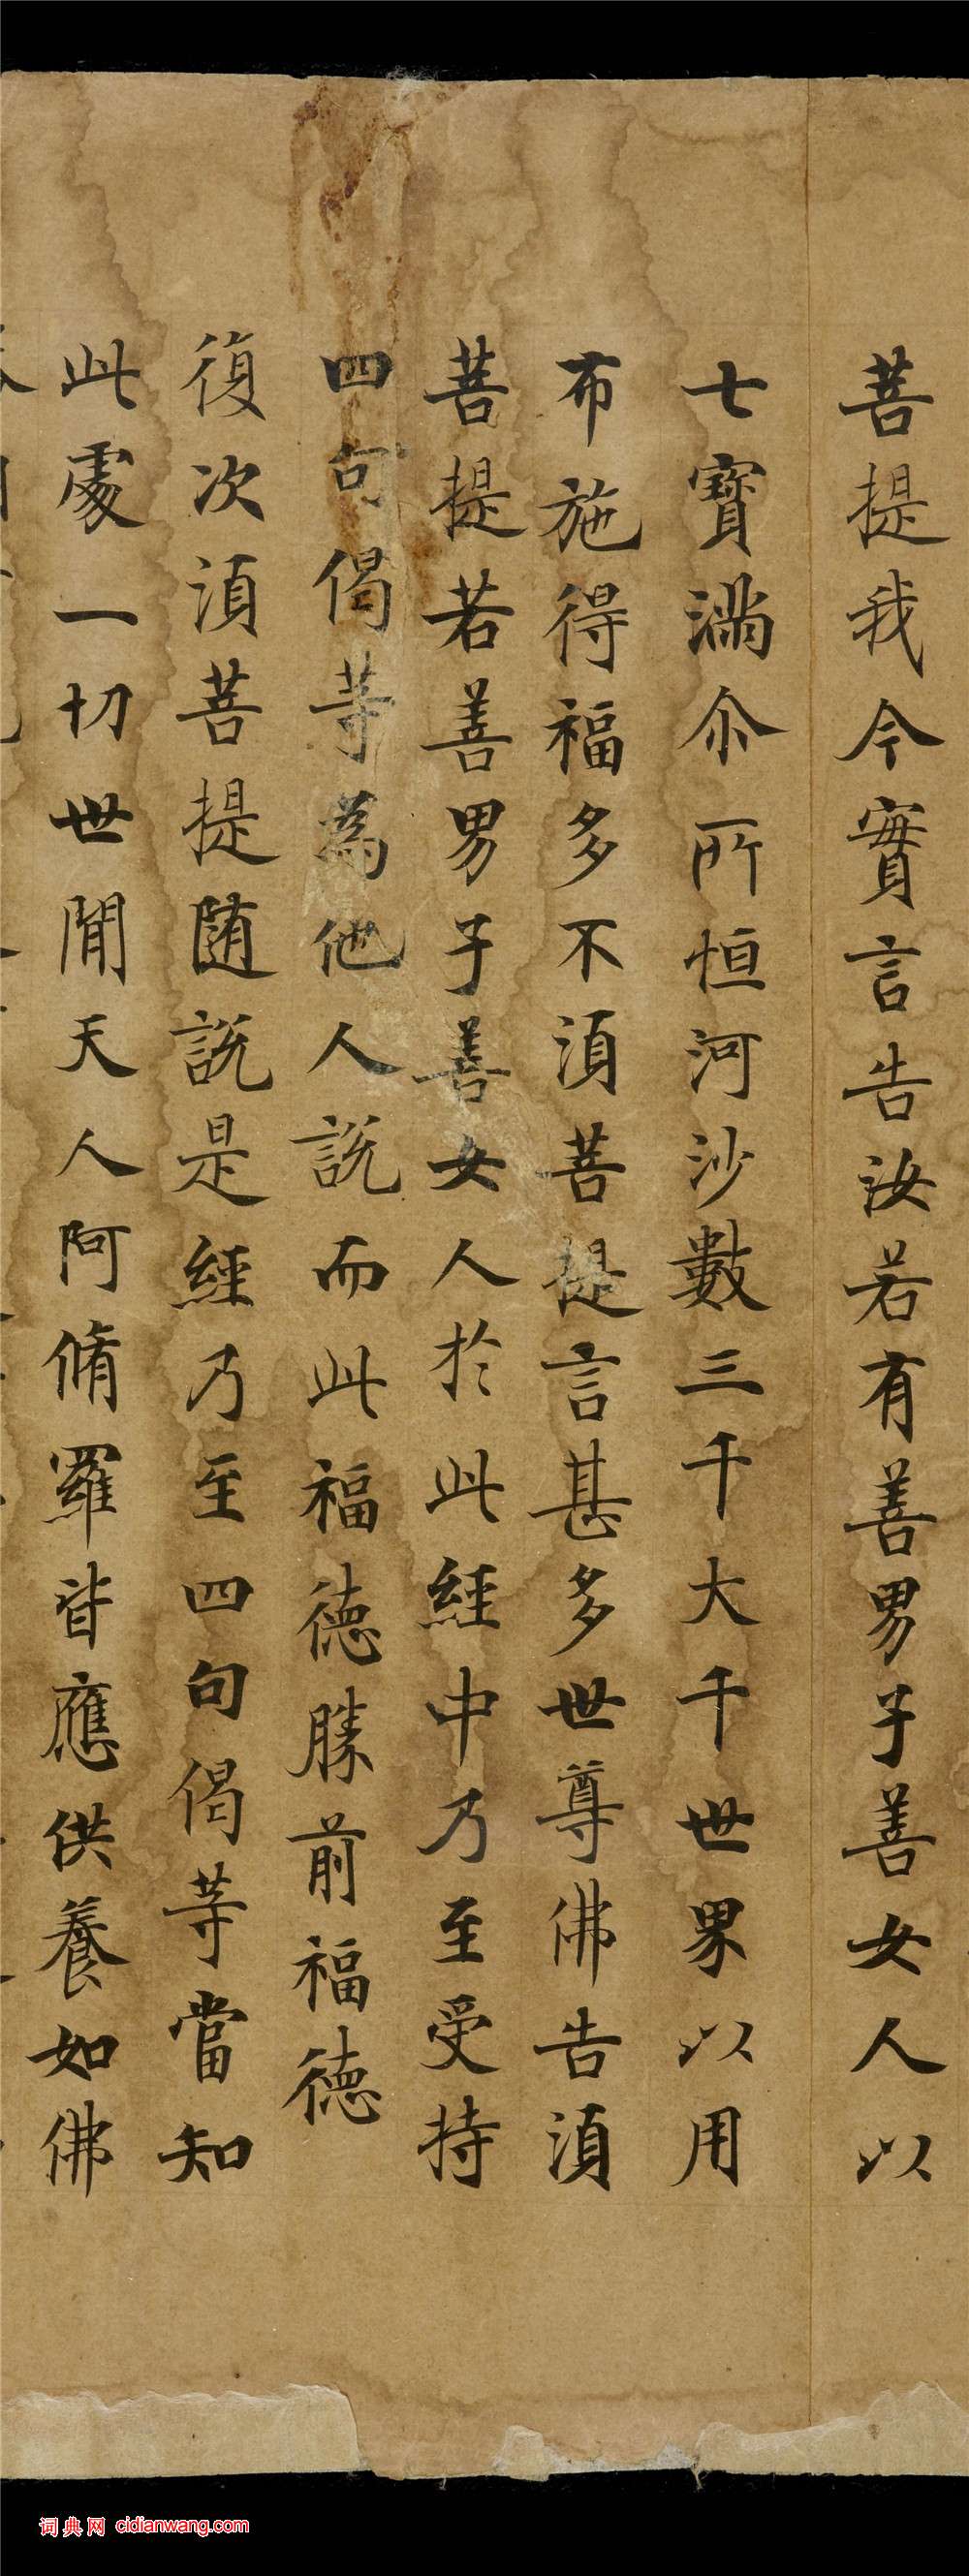 菩提我今實言告汝若有善男子善女人以
七寶滿尒所恒河沙數三千大千世界以用
布施得福多不須菩提言甚多世尊佛告須
菩提若善男子善女人於此經中乃至受持
四句偈等為他人說而此福德勝前福德
復次須菩提隨說是經乃至四句偈等當知
此處一切世間天人阿脩羅皆應供養如佛
词典网 cidianwang.com